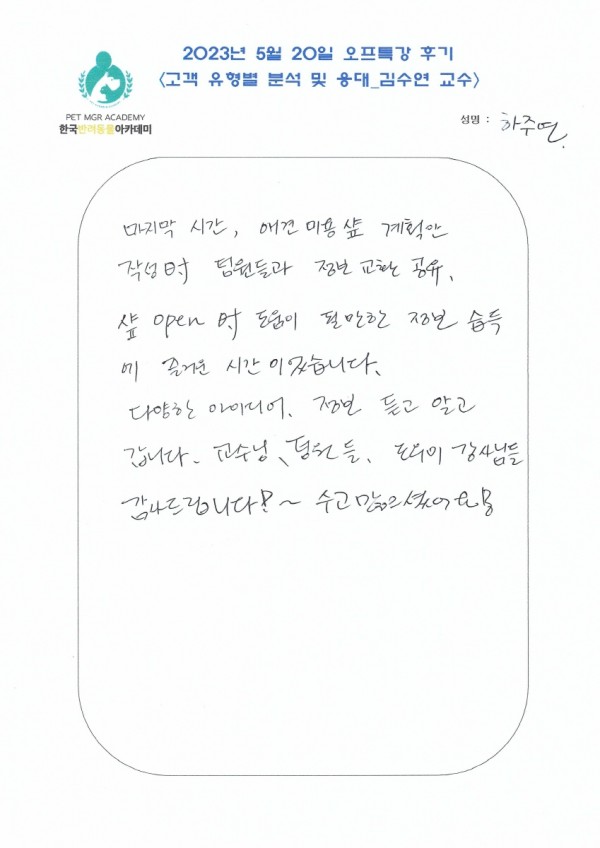 2023년 5월 20일 오프특강 후기
<고객 유형별 분석 및 응대_김수연 교수>
PET MGR ACADEMY
한국반려동물아카데미
성명 : 하주연.
마지막 시간, 애견 미용 샾 계획안
작성 時 팀원들과 정보 교환 공유.
샾 open 時 도움이 될 만한 정보 습득
에 즐거운 시간이었습니다.
다양한 아이디어, 정보 듣고 알고
갑니다. 교수님, 팀원들, 도우미 강사님들
감사드립니다!~ 수고 많으셨어요!